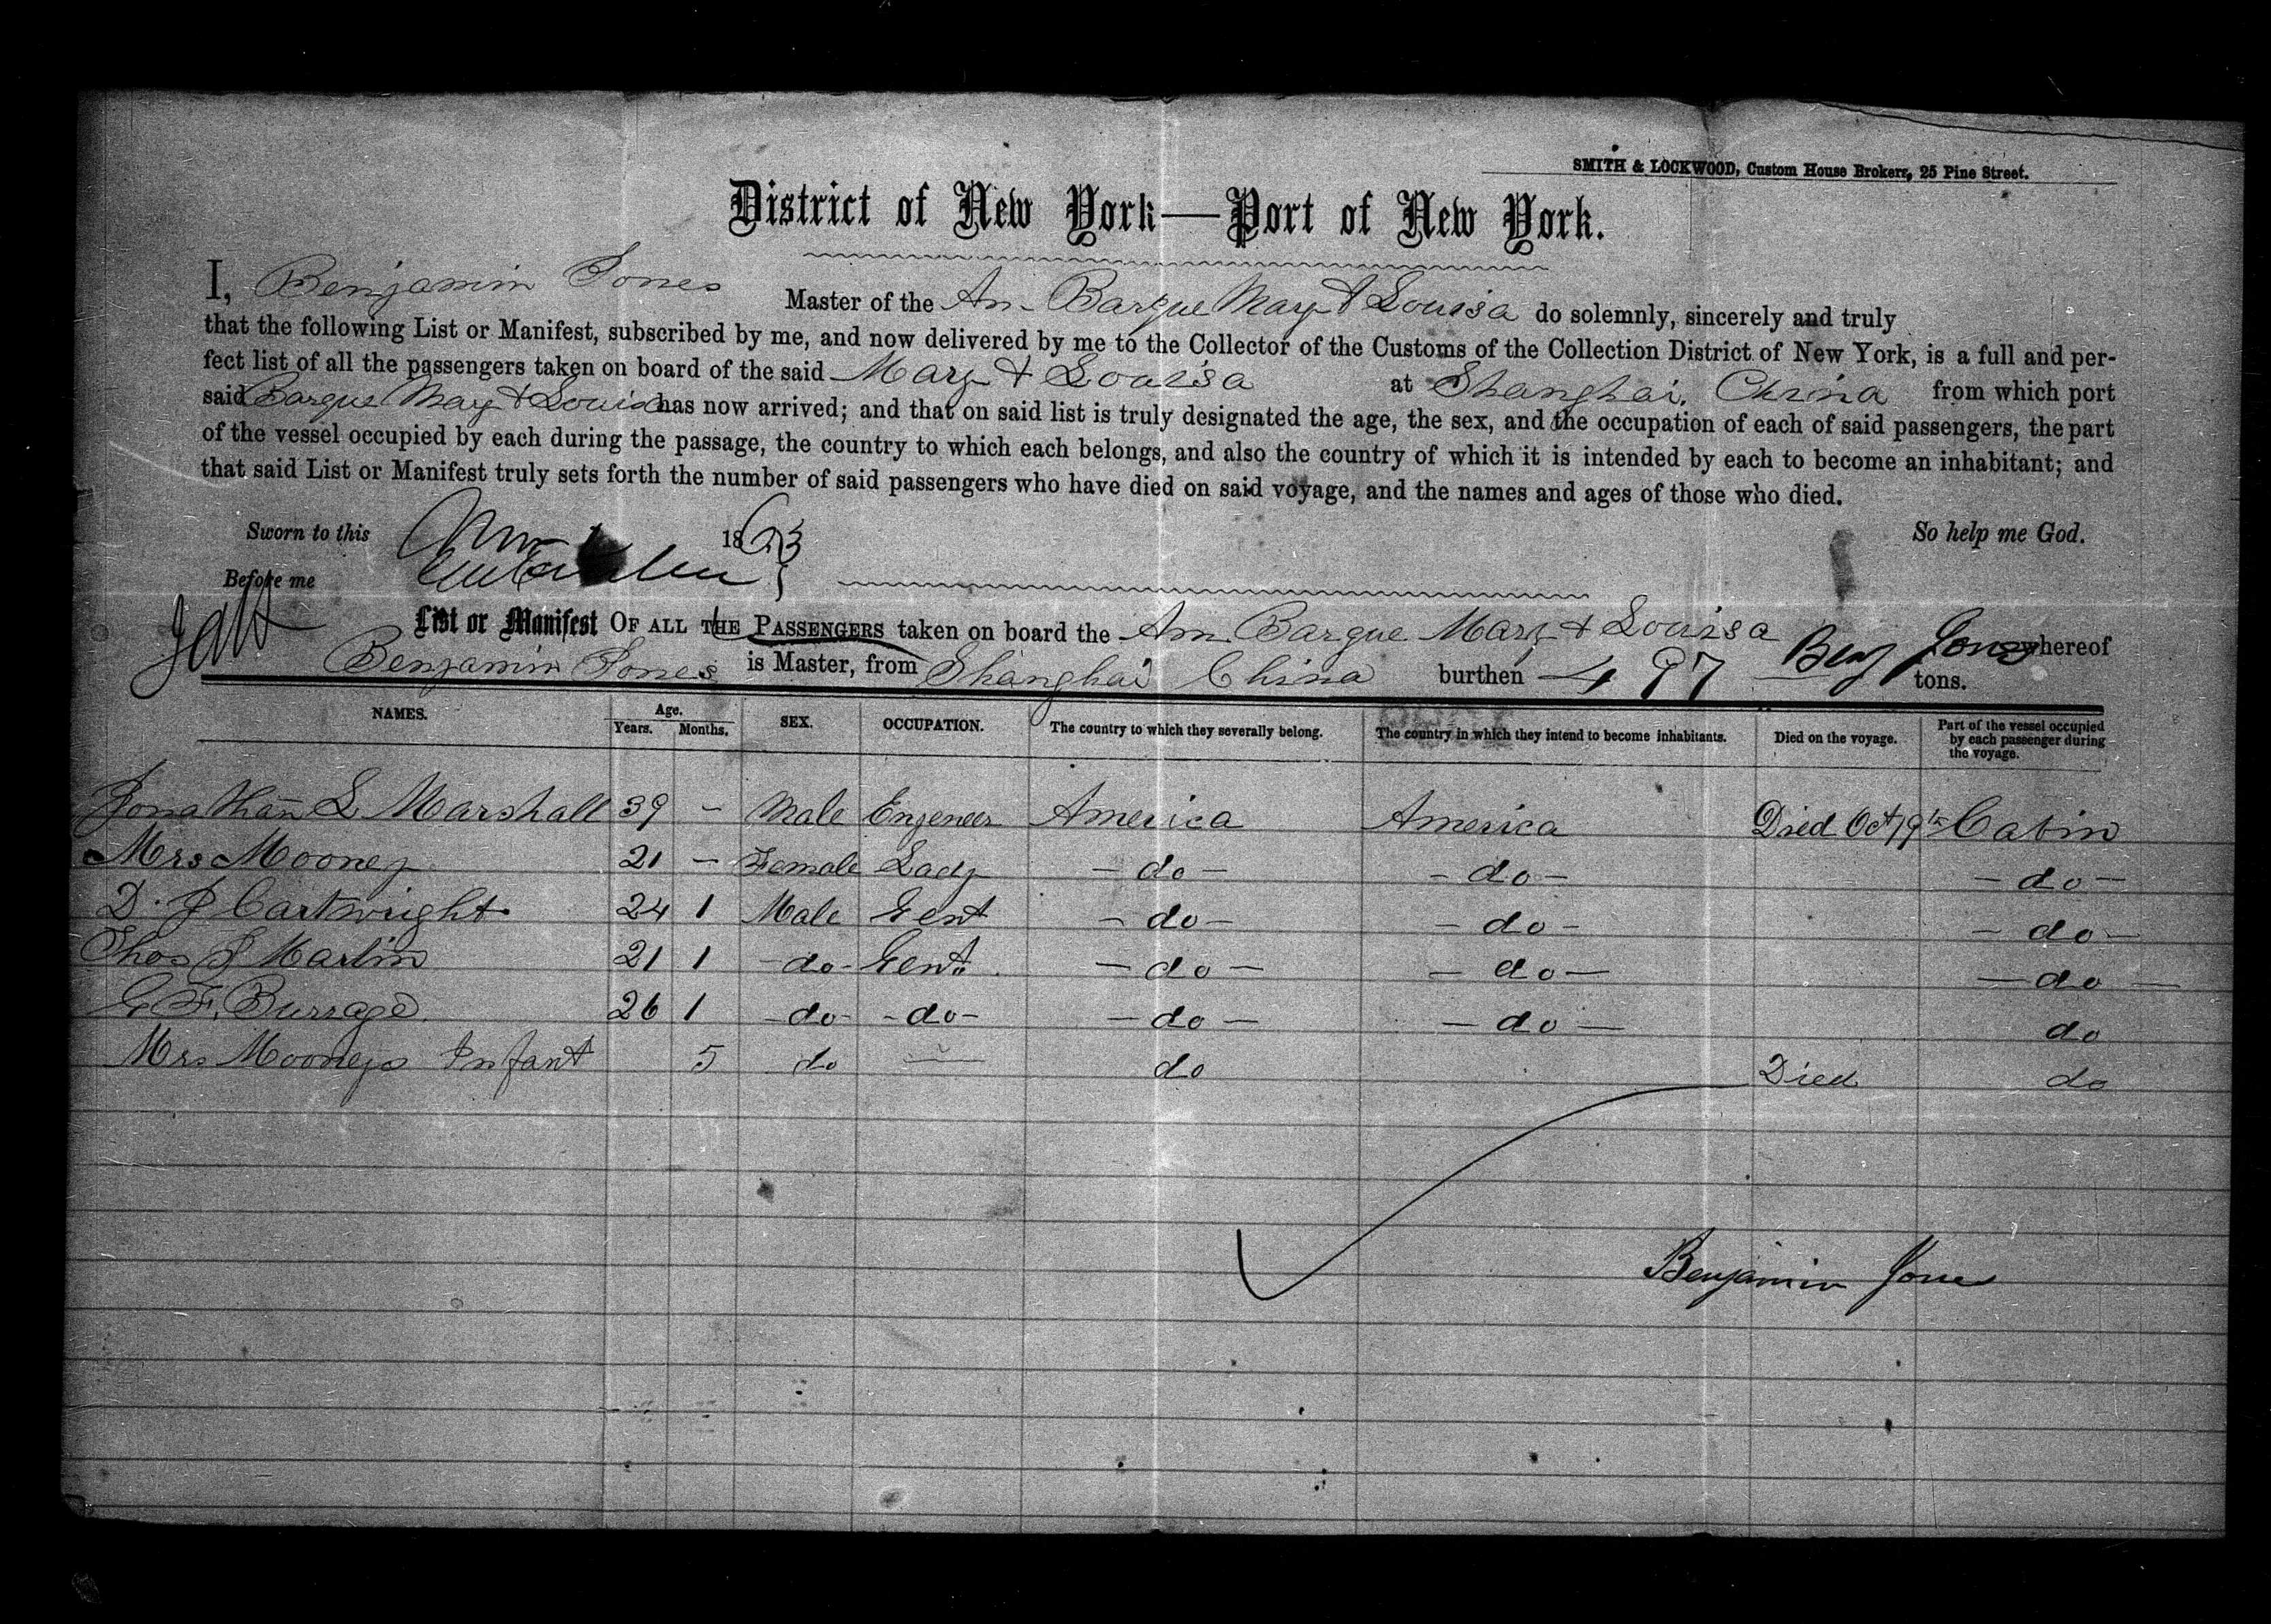 SMITH & LOCKWOOD, Custom House Brokers, 25 Pine Street.
District of New York—Port of New York.
I, Benjamin Jones Master of the Am. Barque Mary & Louisa do solemnly, sincerely and truly
that the following List or Manifest, subscribed by me, and now delivered by me to the Collector of the Customs of the Collection District of New York, is a full and per-
fect list of all the passengers taken on board of the said Mary & Louisa at Shanghai, China from which port
said Barque Mary & Louisa has now arrived; and that on said list is truly designated the age, the sex, and the occupation of each of said passengers, the part
of the vessel occupied by each during the passage, the country to which each belongs, and also the country of which it is intended by each to become an inhabitant; and
that said List or Manifest truly sets forth the number of said passengers who have died on said voyage, and the names and ages of those who died.
Sworn to this 1863 So help me God.
Before me
List or Manifest OF ALL THE PASSENGERS taken on board the Am. Barque Mary & Louisa Benj Jones whereof
Benjamin Jones is Master, from Shanghai China burthen 497 tons.
NAMES. Age. Years. Months. SEX. OCCUPATION. The country to which they severally belong. The country in which they intend to become inhabitants. Died on the voyage. Part of the vessel occupied by each passenger during the voyage.
Jonathan L Marshall 39 - Male Engeneer America America Died Oct 19th Cabin
Mrs Mooney 21 - Female Lady - do - - do - - do -
D. J Cartwright 24 1 Male Gent - do - - do - - do -
Thos J Martin 21 1 - do - Gent. - do - - do - - do -
G F. Burrage 26 1 - do - - do - - do - - do - do
Mrs Mooneys Infant 5 do — do Died do
Benjamin Jones